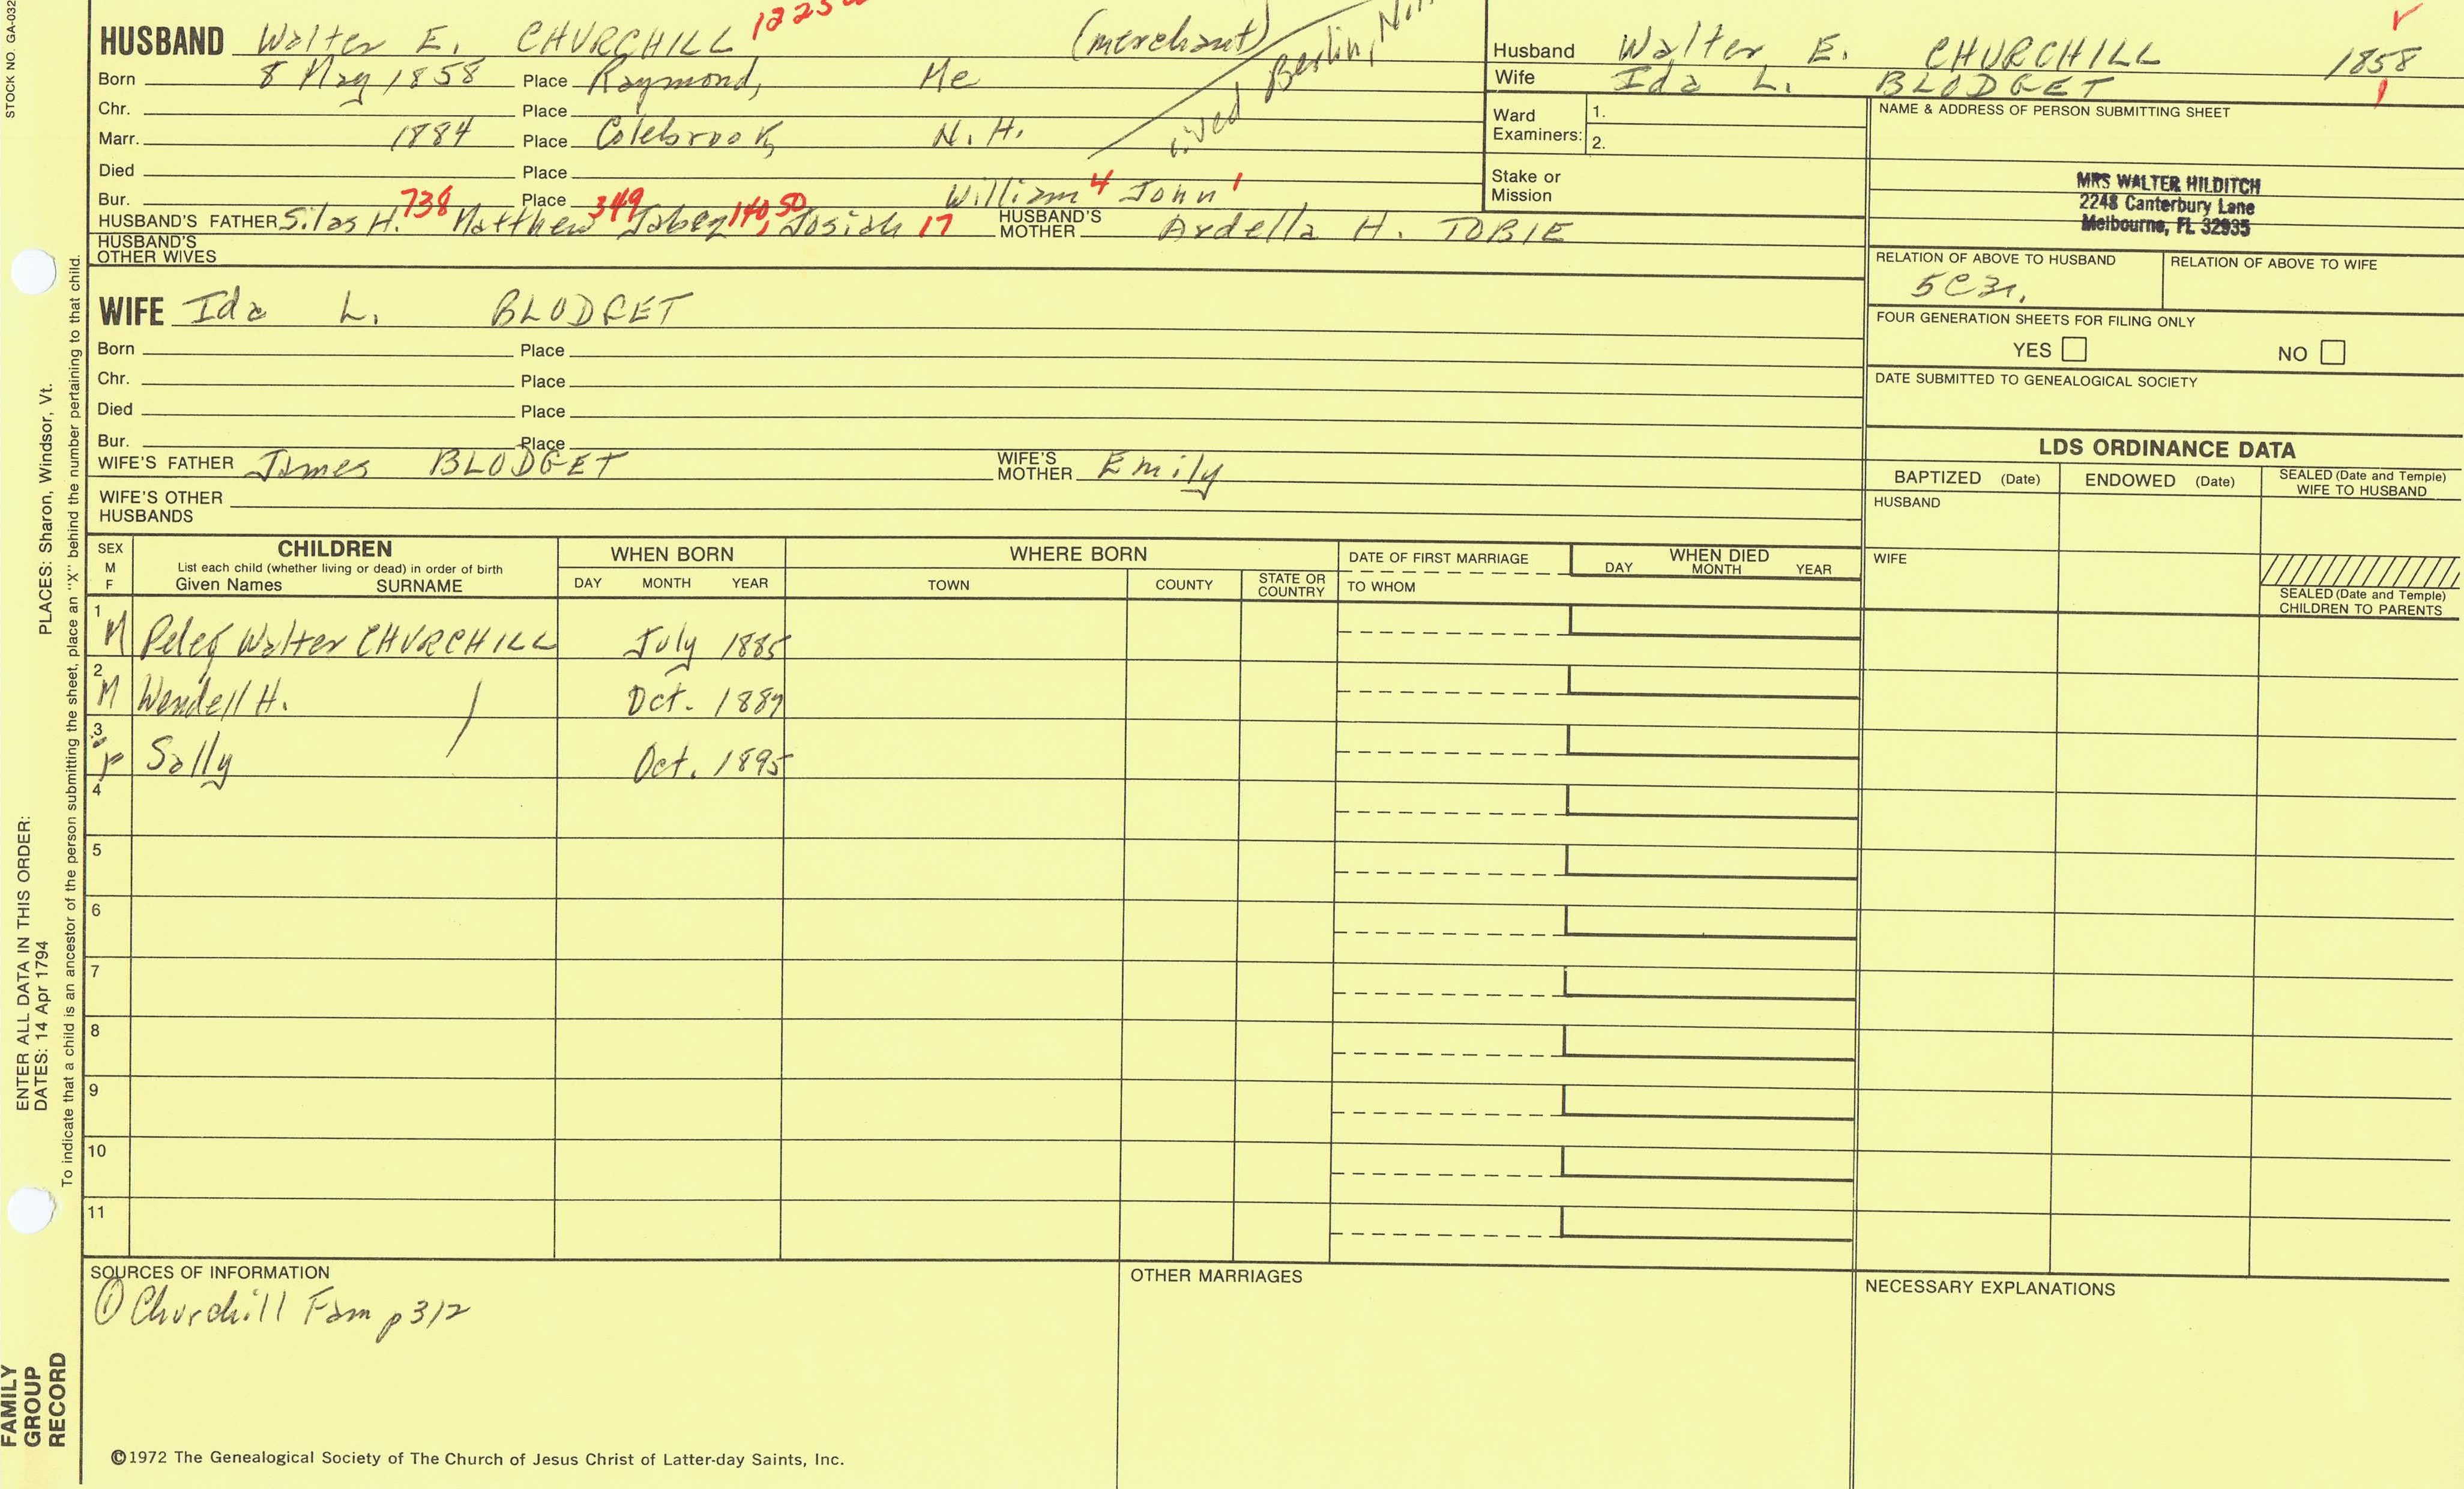 STOCK NO. GA-032
HUSBAND Walter E. CHURCHILL (merchant)
Born 8 May 1858 Place Raymond, Me
lived Berlin,
Chr. Place
Marr. 1884 Place Colebrook, N.H.
Died Place
Bur. Place
HUSBAND'S FATHER Silas H. 738 Matthew 349 Jabez 140, 50 Josiah 17 William 4 John 1
HUSBAND'S MOTHER Ardella H. TOBIE
HUSBAND'S OTHER WIVES
WIFE Ida L. BLODGET
Born Place
Chr. Place
Died Place
Bur. Place
WIFE'S FATHER James BLODGET WIFE'S MOTHER Emily
WIFE'S OTHER HUSBANDS
Husband Walter E. CHURCHILL 1858
Wife Ida L. BLODGET
Ward Examiners: 1.
2.
Stake or Mission
NAME & ADDRESS OF PERSON SUBMITTING SHEET
MRS WALTER HILDITCH
2248 Canterbury Lane
Melbourne, FL 32935
RELATION OF ABOVE TO HUSBAND RELATION OF ABOVE TO WIFE
FOUR GENERATION SHEETS FOR FILING ONLY
YES NO
DATE SUBMITTED TO GENEALOGICAL SOCIETY
LDS ORDINANCE DATA
BAPTIZED (Date) ENDOWED (Date) SEALED (Date and Temple) WIFE TO HUSBAND
HUSBAND
WIFE
SEALED (Date and Temple) CHILDREN TO PARENTS
SEX M F
CHILDREN
List each child (whether living or dead) in order of birth
Given Names SURNAME
WHEN BORN
DAY MONTH YEAR
WHERE BORN
TOWN COUNTY STATE OR COUNTRY
DATE OF FIRST MARRIAGE
TO WHOM
WHEN DIED
DAY MONTH YEAR
1 M Peleg Walter CHURCHILL July 1885
2 M Wendell H. Oct.
3 F Sally Oct. 1895
4
5
6
7
8
9
10
11
SOURCES OF INFORMATION
① Churchill Fam p 312
OTHER MARRIAGES
NECESSARY EXPLANATIONS
©1972 The Genealogical Society of The Church of Jesus Christ of Latter-day Saints, Inc.
FAMILY GROUP RECORD
ENTER ALL DATA IN THIS ORDER:
DATES: 14 Apr 1794
PLACES: Sharon, Windsor, Vt.
To indicate that a child is an ancestor of the person submitting the sheet, place an "X" behind the number pertaining to that child.